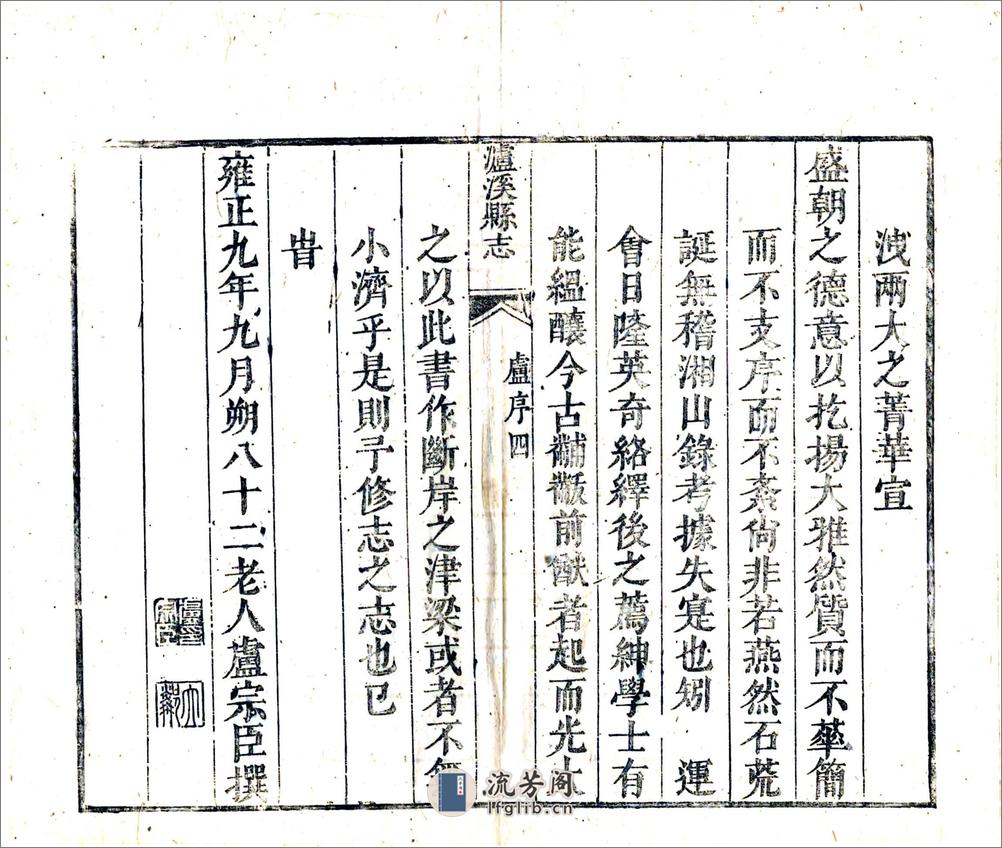 洩兩大之菁華宣
盛朝之德意以扢揚大雅然質而不華簡
而不支序而不紊尙非若燕然石荒
誕無稽湘山錄考據失寔也矧　運
會日隆英奇絡繹後之薦紳學士有
能縕釀今古黼黻前猷者起而光大
瀘溪縣志
盧序四
之以此書作斷岸之津梁或者不無
小濟乎是則予修志之志也已
旹
雍正九年九月朔八十二老人盧宗臣撰
流芳阁
lfglib.cn